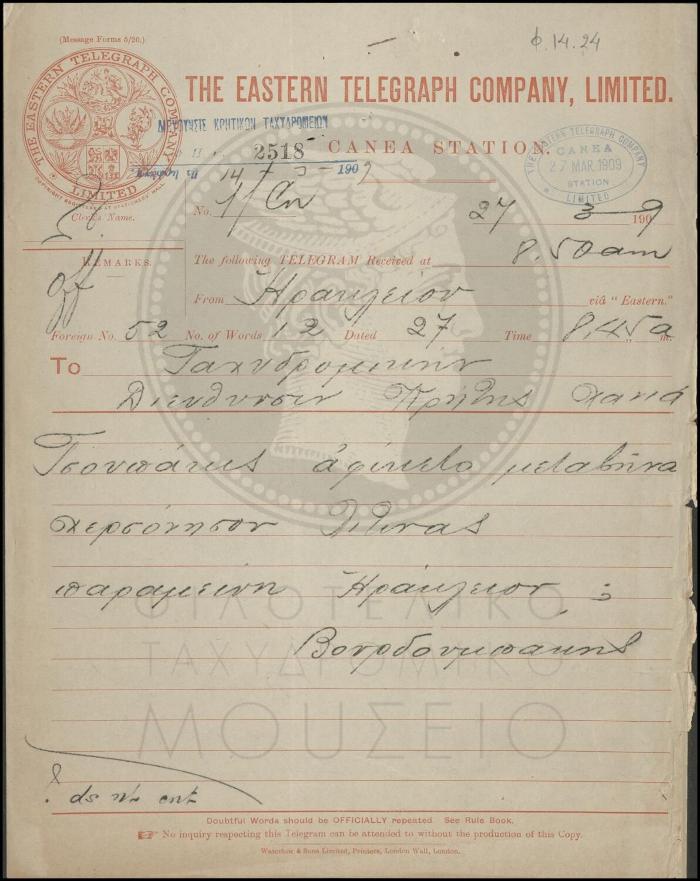 (Message Forms 5/20.)
φ. 14.24
THE EASTERN TELEGRAPH COMPANY
LIMITED
THE EASTERN TELEGRAPH COMPANY, LIMITED.
ΚΡΗΤΙΚΩΝ ΤΑΧΥΔΡΟΜΕΙΩΝ
2518
CANEA STATION.
THE EASTERN TELEGRAPH COMPANY
CANEA
27 MAR. 1909
STATION
LIMITED
1909
Clerk's Name.
No. 1/Cn
27 3 1909
REMARKS.
The following TELEGRAM Received at 8.50 am
off
From Ἡρακλείου viâ "Eastern."
Foreign No. 52 No. of Words 12 Dated 27 Time 8.45 a m.
To Ταχυδρομικήν
Διεύθυνσιν Κρήτης Χανιά
Τσουπάκις ἀφίκετο μεταβῆνα
χερσόνησον
παραμείνη Ἡράκλειον ;
Βουρδουμπάκης
ΦΙΛΟΤΕΛΙΚΟ
ΤΑΧΥΔΡΟΜΙΚΟ
ΜΟΥΣΕΙΟ
Doubtful Words should be OFFICIALLY repeated. See Rule Book.
No inquiry respecting this Telegram can be attended to without the production of this Copy.
Waterlow & Sons Limited, Printers, London Wall, London.